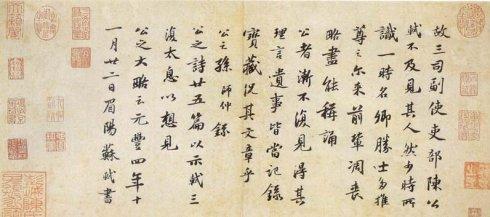 故三司副使吏部陳公
軾不及見其人然少時所
識一時名卿勝士多推
尊之尒來前輩凋喪
略盡能稱誦
公者漸不復見得其
理言遺事皆當記錄
寶藏況其文章乎
公之孫師仲錄
公之詩廿五篇以示軾三
復太息以想見
公之大略云元豐四年十
一月廿二日眉陽蘇軾書